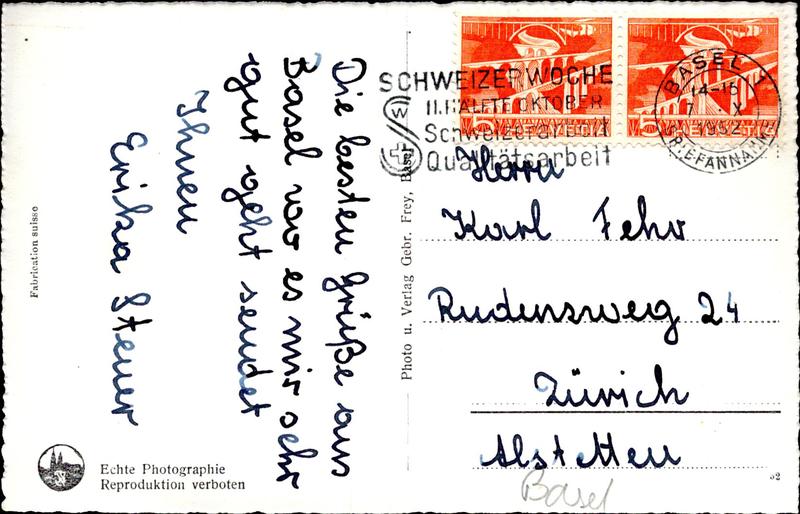 Die besten Grüße aus
Basel wo es mir sehr
gut geht sendet
Ihnen
Erika Steuer
Fabrication suisse
Echte Photographie
Reproduktion verboten
Photo u. Verlag Gebr. Frey, Basel
SCHWEIZERWOCHE
II.HÄLFTE OKTOBER
Schweizerarbeit
Qualitätsarbeit
BASEL 1
14-15
7. X
1952
BRIEFANNAHME
5 HELVETIA
5 HELVETIA
Herrn
Karl Fehr
Rudensweg 24
Zürich
Alstetten
Basel